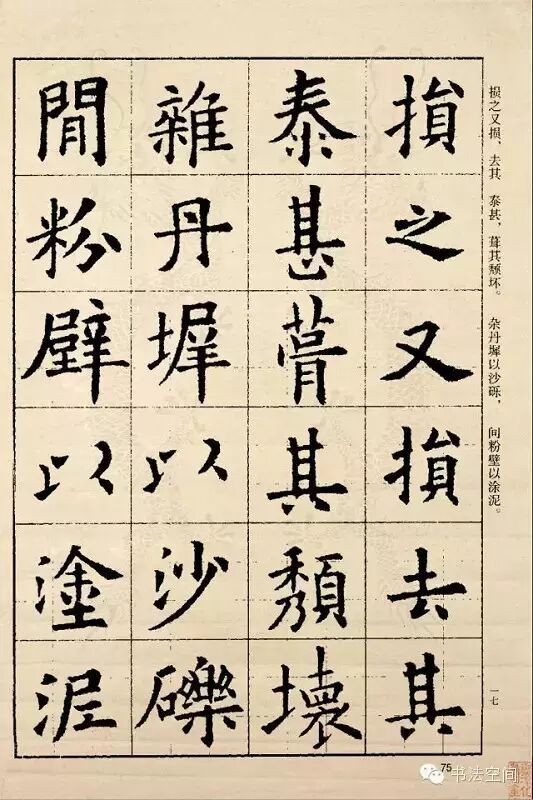 损之又损、去其 泰甚，葺其颓坏。 杂丹墀以沙砾， 间粉壁以涂泥。
一七
損之又損去其
泰甚葺其頹壞
雜丹墀以沙礫
閒粉壁以塗泥
75
书法空间